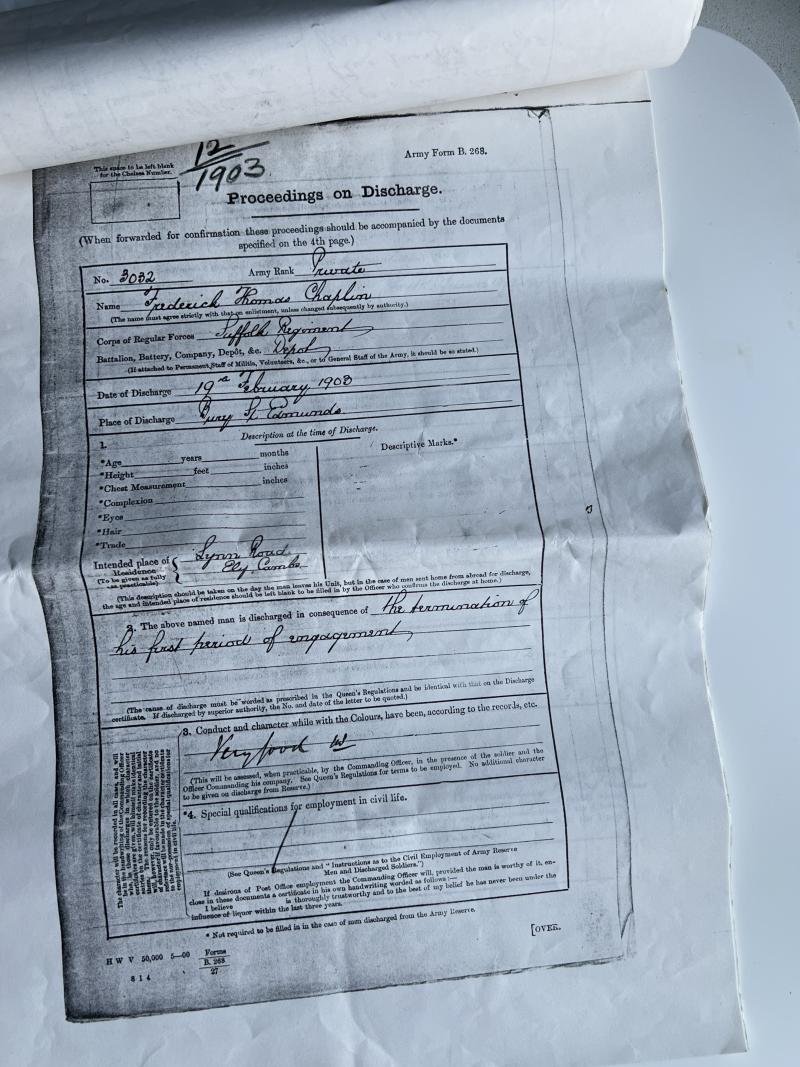 12
1903
This space to be left blank
for the Chelsea Number.
Army Form B. 268.
Proceedings on Discharge.
(When forwarded for confirmation these proceedings should be accompanied by the documents
specified on the 4th page.)
No. 3032 Army Rank Private
Name Frederick Thomas Chaplin
(The name must agree strictly with that on enlistment, unless changed subsequently by authority.)
Corps of Regular Forces Suffolk Regiment
Battalion, Battery, Company, Depôt, &c. Depot
(If attached to Permanent Staff of Militia, Volunteers, &c., or to General Staff of the Army, it should be so stated.)
Date of Discharge 19th February 1903
Place of Discharge Bury St Edmunds
1. Description at the time of Discharge.
*Age years months
*Height feet inches
*Chest Measurement inches
*Complexion
*Eyes
*Hair
*Trade
Descriptive Marks.*
Intended place of
Residence
(To be given as fully
as practicable)
Lynn Road
Ely Cambs
(This description should be taken on the day the man leaves his Unit, but in the case of men sent home from abroad for discharge,
the age and intended place of residence should be left blank to be filled in by the Officer who confirms the discharge at home.)
2. The above named man is discharged in consequence of the termination of
his first period of engagement
(The cause of discharge must be worded as prescribed in the Queen's Regulations and be identical with that on the Discharge
certificate. If discharged by superior authority, the No. and date of the letter to be quoted.)
3. Conduct and character while with the Colours, have been, according to the records, etc.
Very good
(This will be assessed, when practicable, by the Commanding Officer, in the presence of the soldier and the
Officer Commanding his company. See Queen's Regulations for terms to be employed. No additional character
to be given on discharge from Reserve.)
*4. Special qualifications for employment in civil life.
(See Queen's Regulations and "Instructions as to the Civil Employment of Army Reserve
Men and Discharged Soldiers.")
If desirous of Post Office employment the Commanding Officer will, provided the man is worthy of it, en-
close in these documents a certificate in his own handwriting worded as follows:—
I believe is thoroughly trustworthy and to the best of my belief he has never been under the
influence of liquor within the last three years.
* Not required to be filled in in the case of men discharged from the Army Reserve.
[OVER.
H W V 50,000 5—00 Forms
B. 268
27
8 1 4